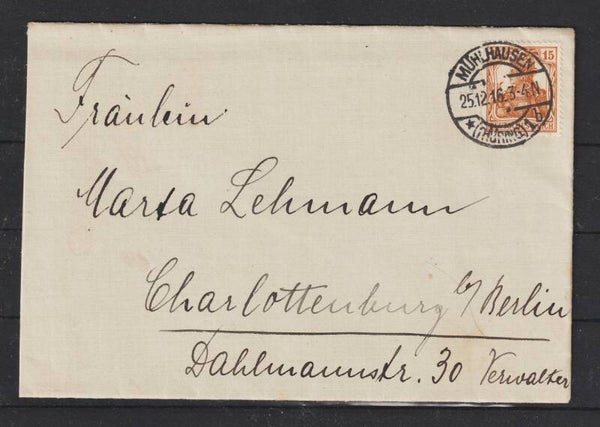 15
MÜHLHAUSEN
25.12.16.3-4N.
* (THÜRING) 1 b
Fräulein
Marta Lehmann
Charlottenburg b/Berlin
Dahlmannstr. 30 Verwalter